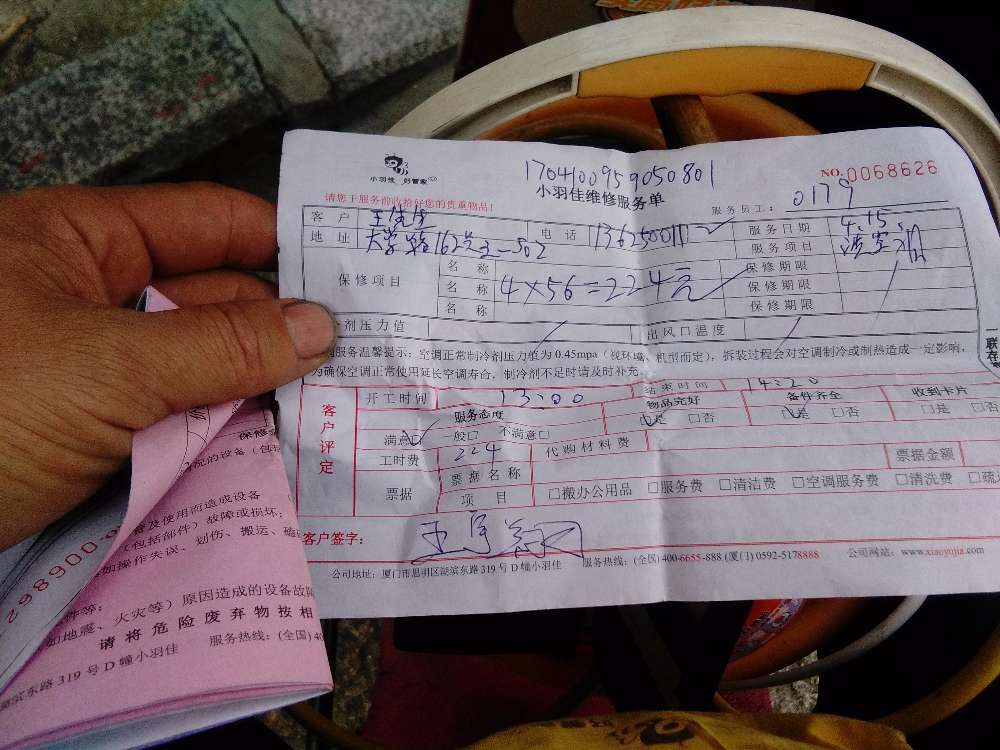 小羽佳 好管家
1704100959050801
NO.0068626
请您于服务前收拾好您的贵重物品！
小羽佳维修服务单
服务员工： 0179
客 户 电 话 服务日期 4.15.
地 址 大学路162号之一502 服务项目
保修项目 名 称 保修期限
名 称 4×56=224元 保修期限
名 称 保修期限
剂压力值 出风口温度
服务温馨提示：空调正常制冷剂压力值为 0.45mpa（视环境、机型而定），拆装过程会对空调制冷或制热造成一定影响，
为确保空调正常使用延长空调寿命，制冷剂不足时请及时补充。
一联存
客户评定
开工时间 13:00 结束时间 14:20
服务态度 物品完好 备件齐全 收到卡片
满意□ 一般□ 不满意□ □是 □否 □是 □否 □是 □否
工时费 224 代购材料费
票据 票据名称 票据金额
项 目 □搬办公用品 □服务费 □清洁费 □空调服务费 □清洗费 □疏
客户签字：
公司地址：厦门市思明区湖滨东路 319 号 D 幢小羽佳 服务热线：(全国) 400-6655-888 (厦门) 0592-5178888 公司网站：www.xiaoyujia.com
保修
况的设备（包括
及使用而造成设备
（包括部件）故障或损坏；
如操作失误、划伤、搬运、磕
298900
件等；
如地震、火灾等）原因造成的设备故障
请 将 危 险 废 弃 物 按 相
服务热线：(全国) 40
滨东路 319 号 D 幢小羽佳